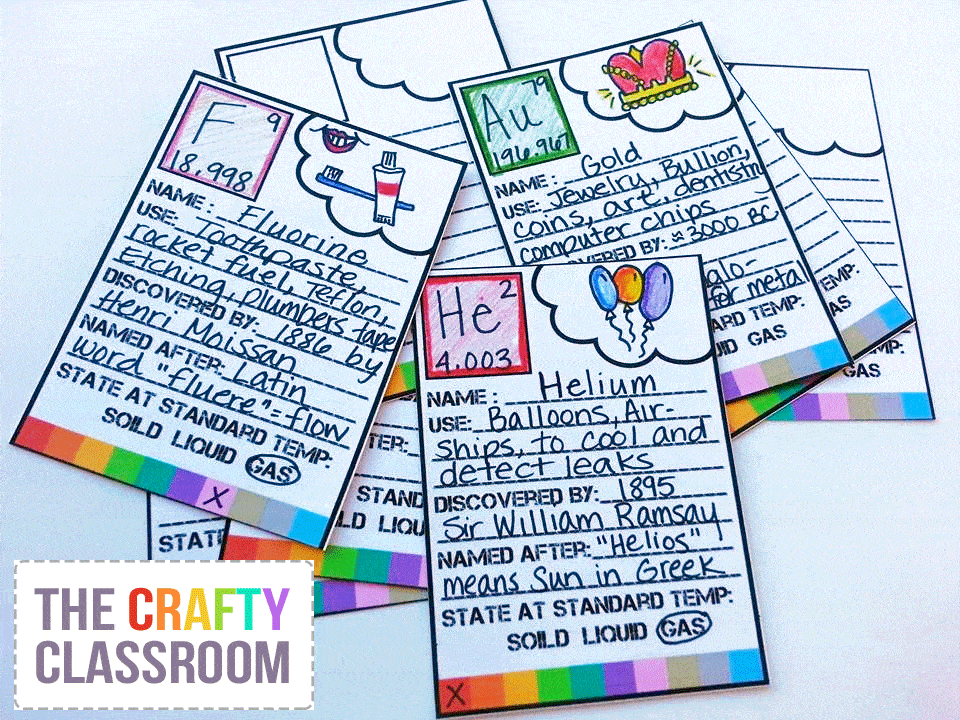 F 9
18.998
NAME: Fluorine
USE: Toothpaste,
rocket fuel, Teflon,
Etching, plumbers tape
DISCOVERED BY: 1886 by
Henri Moissan
NAMED AFTER: Latin
word "fluere" = flow
STATE AT STANDARD TEMP:
SOILD LIQUID GAS
X
Au 79
196.967
NAME: Gold
USE: Jewelry, Bullion,
coins, art, dentistry
computer chips
COVERED BY: ≈3000 BC
alo-
for metal
ARD TEMP:
UID GAS
He 2
4.003
NAME: Helium
USE: Balloons, Air-
ships, to cool and
detect leaks
DISCOVERED BY: 1895
Sir William Ramsay
NAMED AFTER: "Helios"
means Sun in Greek
STATE AT STANDARD TEMP:
SOILD LIQUID GAS
X
TER:
STAND
ILD LIQU
STATE
TEMP:
GAS
TEMP:
GAS
THE CRAFTY
CLASSROOM